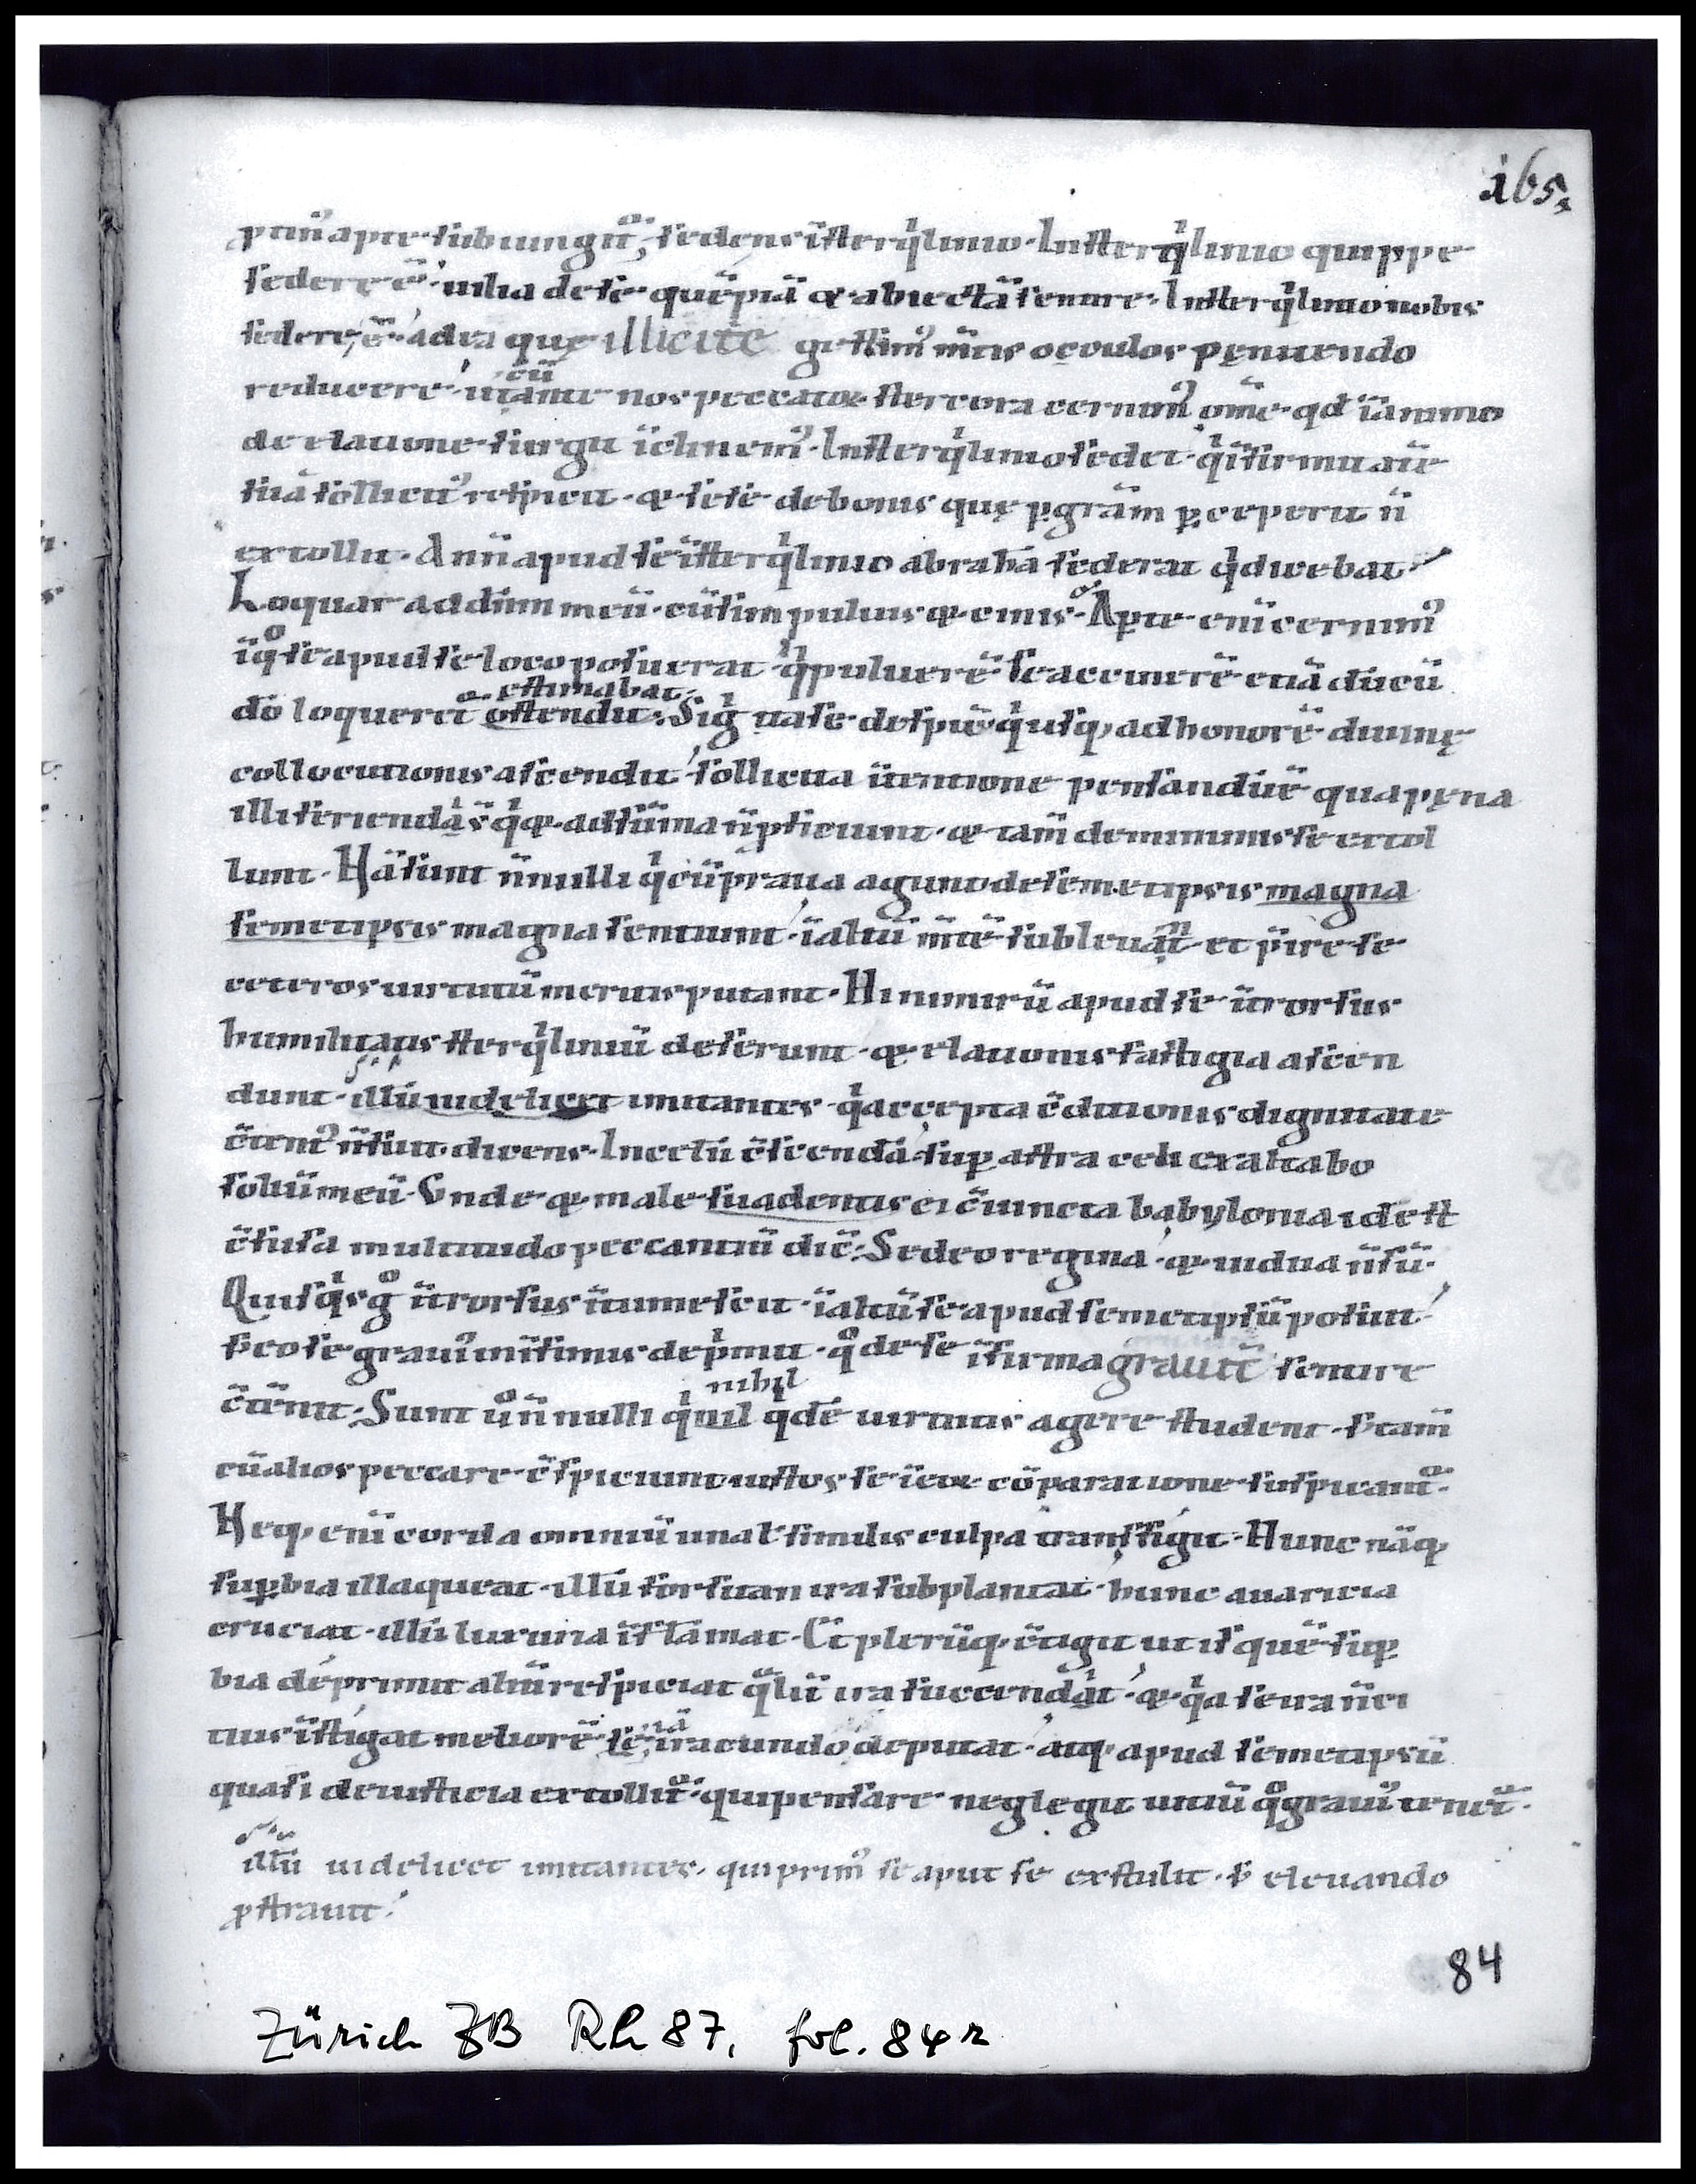 165.
ptin᾽ apte subiungit᷑; sedens ĩ sterqͥlinio. In sterqͥlinio quippe
sedere ẽ᾽ uilia de se quẽpiã & abiectã sentire. In sterqͥlinio nobis
sedere ẽ᾽ ad ea quę illicite gessim᾽ m̃tis oculos pęnitendo
reducere᾽ ut ante cũ nos peccatoꝝ stercora cernim᾽ om̃e qđ ĩ animo
de elatione surgit ĩclinem᾽. In sterqͥlinio sedet qͥ ĩfirmitatẽ
suã sollicit᾽ respicit. & sese de bonis quę ꝑ gr̃am ꝑceperit ñ
extollit. An ñ apud se ĩ sterqͥlinio abrahã sederat qͥ dicebat
Loquar ad dñm meũ cũ sim puluis & cinis. Aꝑte eni cernim᾽
ĩ qͦ se apud se loco posuerat qͥ puluerẽ se ac cinerẽ etiã cũ
dõ loqueret᷑ estimabat ostendit. Si gͥ ita se despicit qͥsqͥs ad honorẽ diuinę
collocutionis ascendit᾽ sollicita ĩtentione pensandũ ẽ qua pęna
illi feriendi s̃ qͥ & ad sũma ñ ꝓficiunt & tam̃ de minimis se extol
lunt. Nã sunt ñnulli qͥ cũ praua agunt de semetipsis magna
semetipsis magna sentiunt᾽ ĩ altũ m̃tẽ subleuãt et p̃ire se
ceteros uirtutũ meritis putant. Hi nimirũ apud se ĩtrorsus
humilitatis sterqͥliniũ deserunt & elationis fastigia ascen
dunt. illũ uidelicet imitantes qͥ accepta c̃ditionis dignitate
c̃tent᾽ ñ fuit dicens. In celũ c̃scendã suꝑ astra celi exaltabo
soliũ meũ. Unde & male suadentis ei c̃iuncta babylonia id est
c̃fusa multitudo peccantiũ dic̃. Sedeo regina᾽ & uidua ñ sũ.
Quisqͥs gͦ ĩtrorsus ĩtumescit ĩ altũ se apud semetipsũ posuit᾽
s; eo se graui᾽ ĩ ifimis depͥmit qͦ de se ĩfirma grauit᷑ sentire
c̃tẽnit. Sunt u᷑ ñnulli qͥ nil nihil qͥdẽ uirtutis agere student. s; tam̃
cũ alios peccare c̃spiciunt iustos se ĩ eoꝝ cõparatione suspicant᷑.
Neqꝫ eni corda omniũ una ɫ similis culpa transfigit. Hunc nãqꝫ
suꝑbia illaqueat illũ forsitan ira subplantat hunc auaricia
cruciat illũ luxuria ĩflãmat. Et plerũqꝫ c̃tigit ut is quẽ suꝑ
bia deprimit aliũ respiciat qͣlit᷑ ira succendat᾽ & qͥa se ira ñ ci
tius ĩstigat meliorẽ se iã iracundo deputat atqꝫ apud semetipsũ
quasi de iusticia extollit᷑ qui pensare neglegit uitiũ qͦ graui᾽ tenet᷑.
illũ uidelicet imitantes. qui prim᾽ se aput se extulit. s; eleuando
ꝓstrauit.
84
Zürich ZB Rh 87, fol. 84r